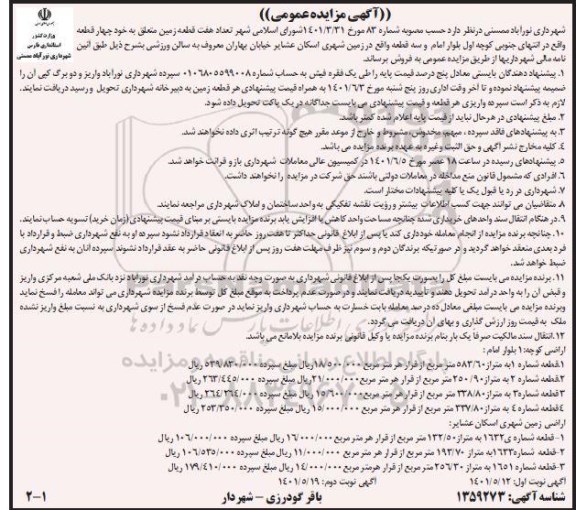 ((آگهی مزایده عمومی))
وزارت کشور
استانداری فارس
شهرداری نورآباد ممسنی
شهرداری نورآباد ممسنی درنظر دارد حسب مصوبه شماره ۸۳ مورخ ۱۴۰۱/۳/۳۱ شورای اسلامی شهر تعداد هفت قطعه زمین متعلق به خود چهار قطعه
واقع در انتهای جنوبی کوچه اول بلوار امام و سه قطعه واقع در زمین شهری اسکان عشایر خیابان بهاران معروف به سالن ورزشی بشرح ذیل طبق آئین
نامه مالی شهرداریها از طریق مزایده عمومی به فروش برساند.
۱. پیشنهاد دهندگان بایستی معادل پنج درصد قیمت پایه را طی یک فقره فیش به حساب شماره ۰۱۰۶۸۰۵۵۹۹۰۰۸ سپرده شهرداری نورآباد واریز و دو برگ کپی آن را
ضمیمه پیشنهاد نموده و تا آخر وقت اداری روز پنج شنبه مورخ ۱۴۰۱/۶/۳ به همراه قیمت پیشنهادی هر قطعه زمین به دبیرخانه شهرداری تحویل و رسید دریافت نمایند.
لازم به ذکر است سپرده واریزی هر قطعه و قیمت پیشنهادی می بایست جداگانه در یک پاکت تحویل داده شود.
۲. مبلغ پیشنهادی در هرحال نباید از قیمت پایه اعلام شده کمتر باشد.
۳. به پیشنهادهای فاقد سپرده، مبهم، مخدوش، مشروط و خارج از موعد مقرر هیچ گونه ترتیب اثری داده نخواهد شد.
۴. کلیه مخارج نشر آگهی و حق الثبت وغیره به عهده برنده مزایده می باشد.
۵. پیشنهادهای رسیده در ساعت ۱۸ عصر مورخ ۱۴۰۱/۶/۵ در کمیسیون عالی معاملات شهرداری باز و قرائت خواهد شد.
۶. افرادی که مشمول قانون منع مداخله در معاملات دولتی باشند حق شرکت در مزایده را نخواهند داشت.
۷. شهرداری در رد یا قبول یک یا کلیه پیشنهادات مختار است.
۸. متقاضیان می توانند جهت کسب اطلاعات بیشتر و رویت نقشه تفکیکی به واحد ساختمان و املاک شهرداری مراجعه نمایند.
۹. در هنگام انتقال سند واحدهای خریداری شده چنانچه مساحت واحد کاهش یا افزایش یابد برنده مزایده بایستی بر مبنای قیمت پیشنهادی (زمان خرید) تسویه حساب نمایند.
۱۰. چنانچه برنده مزایده از انجام معامله خودداری کند یا پس از ابلاغ قانونی حداکثر تا هفت روز حاضر به انعقاد قرارداد نشود سپرده او به نفع شهرداری ضبط و قرارداد با
فرد بعدی منعقد خواهد گردید و در صورتیکه برندگان دوم و سوم نیز ظرف مهلت هفت روز پس از ابلاغ قانونی حاضر به عقد قرارداد نشوند سپرده آنان به نفع شهرداری
ضبط خواهد شد.
۱۱. برنده مزایده می بایست مبلغ کل را بصورت یکجا پس از ابلاغ قانونی شهرداری به صورت وجه نقد به حساب درآمد شهرداری نورآباد نزد بانک ملی شعبه مرکزی واریز
و قبض آن را به واحد درآمد تحویل دهند و تاییدیه دریافت نمایند و در صورت عدم پرداخت به موقع مبلغ کل توسط برنده مزایده شهرداری می تواند معامله را فسخ نماید
وبرنده مزایده می بایست مبلغی معادل ده درصد معامله بابت خسارت به حساب شهرداری واریز نماید در صورت عدم فسخ از سوی شهرداری به نسبت مبلغ واریز نشده
ملک به قیمت روز ارزش گذاری و بهای آن دریافت می گردد.
۱۲. انتقال سند مالکیت صرفا یک بار بنام برنده مزایده یا وکیل قانونی برنده مزایده بلامانع می باشد.
اراضی کوچه: ۱ بلوار امام:
۱. قطعه شماره ۱ به متراژ ۵۸۳/۶۰ متر مربع از قرار هر متر مربع ۱۸/۵۰۰/۰۰۰ ریال مبلغ سپرده ۵۳۹/۸۳۰/۰۰۰ ریال
۲. قطعه شماره ۲ به متراژ ۲۵۰/۹۰ متر مربع از قرار هر متر مربع ۲۱/۰۰۰/۰۰۰ ریال مبلغ سپرده ۲۶۳/۴۴۵/۰۰۰ ریال
۳. قطعه شماره ۳ به متراژ ۳۳۸/۸۰ متر مربع از قرار هر متر مربع ۱۵/۶۰۰/۰۰۰ ریال مبلغ سپرده ۲۶۴/۲۶۴/۰۰۰ ریال
۴. قطعه شماره ۴ به متراژ ۳۳۷/۸۰ متر مربع از قرار هر متر مربع ۱۵/۰۰۰/۰۰۰ ریال مبلغ سپرده ۲۵۳/۳۵۰/۰۰۰ ریال
اراضی زمین شهری اسکان عشایر:
۱-قطعه شماره ی ۱۶۳۲ به متراژ ۱۳۲/۵۰ متر مربع از قرار هر متر مربع ۱۶/۰۰۰/۰۰۰ ریال مبلغ سپرده ۱۰۶/۰۰۰/۰۰۰ ریال
۲-قطعه شماره ۱۶۳۳ به متراژ ۱۹۳/۷۰ متر مربع از قرار هر متر مربع ۱۱/۰۰۰/۰۰۰ ریال مبلغ سپرده ۱۰۶/۵۳۵/۰۰۰ ریال
۳-قطعه شماره ۱۶۵۱ به متراژ ۲۵۶/۳۰ متر مربع از قرار هرمتر مربع ۱۴/۰۰۰/۰۰۰ ریال مبلغ سپرده ۱۷۹/۴۱۰/۰۰۰ ریال
آگهی نوبت اول: ۱۴۰۱/۵/۱۲ آگهی نوبت دوم: ۱۴۰۱/۵/۱۹
شناسه آگهی: ۱۳۵۹۲۷۳ باقر گودرزی - شهردار ۲-۱